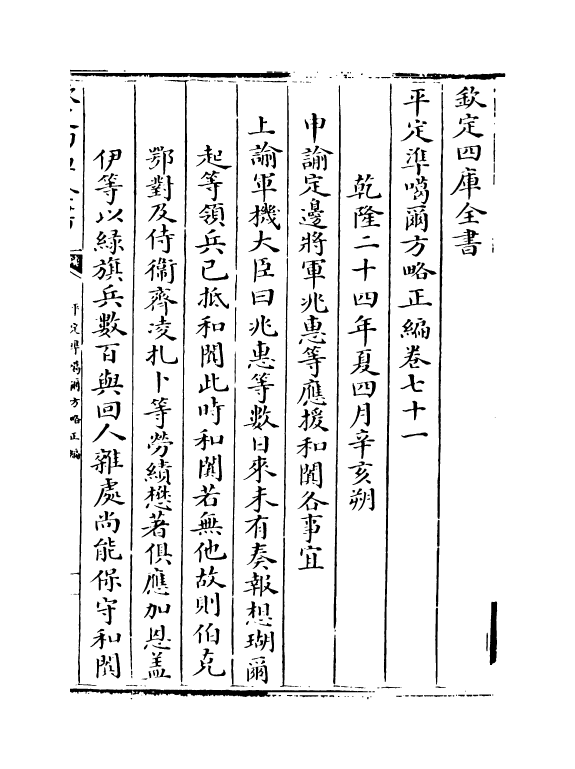 欽定四庫全書
平定準噶爾方略正編卷七十一
乾隆二十四年夏四月辛亥朔
申諭定邊將軍兆惠等應援和闐各事宜
上諭軍機大臣曰兆惠等數日來未有奏報想瑚爾
起等領兵已抵和闐此時和闐若無他故則伯克
鄂對及侍衛齊凌扎卜等勞績懋著俱應加恩蓋
伊等以綠旗兵數百與回人雜處尚能保守和闐
平定準噶爾方略正編